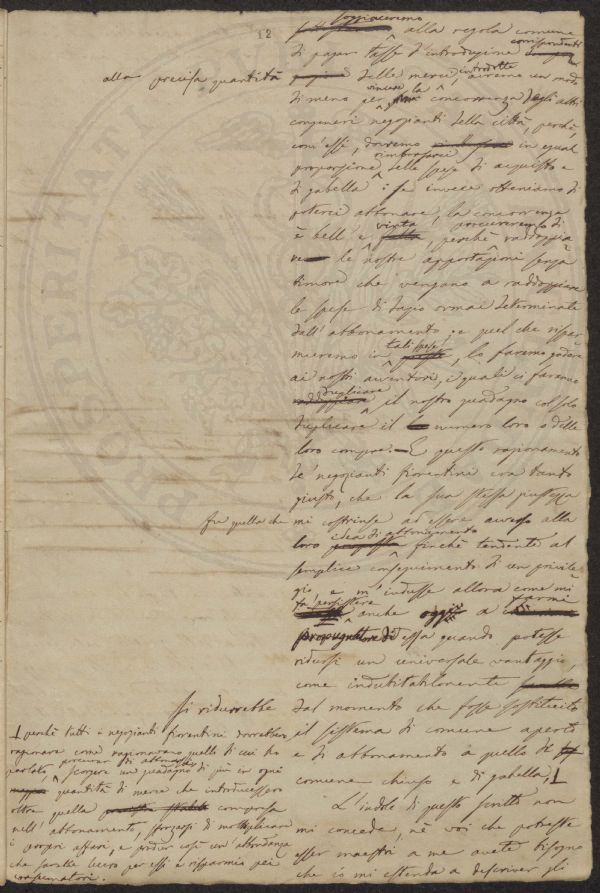 12
soggiaceremo
alla regola comune
di pagar tasse d'introduzione corrispondenti
alla precisa quantità
delle merci introdotte, avremo un modo
di meno per vincere la concorrenza degli altri
congeneri negozianti della città, perchè,
com'essi, dovremo in egual
proporzione rimborsarci delle spese di acquisto e
di gabella: se invece otteniamo di
poterci abbonare, la concorrenza
è bell'e vinta, perchè procureremo di raddoppia
re le nostre apportazioni senza
timore che vengano a raddoppiare
le spese di dazio ormai determinate
dall'abbonamento; e quel che rispar
mieremo in tali spese, lo faremo godere
ai nostri avventori, i quali ci faranno
duplicare il nostro guadagno col solo
duplicare il numero loro o delle
loro compre. — E questo ragionamento
de' negozianti fiorentini era tanto
giusto, che la sua stessa giustezza
fu quella che mi costrinse ad essere avverso alla
loro idea di abbonamento finchè tendente al
semplice conseguimento di un privile
gio, e m'indusse allora come mi
fa persistere anche oggi a farmi
propugnatore di essa quando potesse
ridursi un universale vantaggio,
come indubitabilmente
si ridurrebbe
dal momento che fosse sostituito
il sistema di comune aperto
e di abbonamento a quello di
comune chiuso e di gabella;
perchè tutti i negozianti fiorentini dovrebbero
ragionare come ragionavano quelli di cui ho
parlato, procurar di abbonarsi,
scorgere un guadagno di più in ogni
quantità di merce che introducessero
oltre quella compresa
nell'abbonamento, sforzarsi di moltiplicare
i propri affari, e produr così un'abbondanza
che sarebbe lucro per essi e risparmio pei
consumatori.
L'indole di questo scritto non
mi concede, nè voi che potreste
esser maestri a me avete bisogno
che io mi estenda a descriver gli